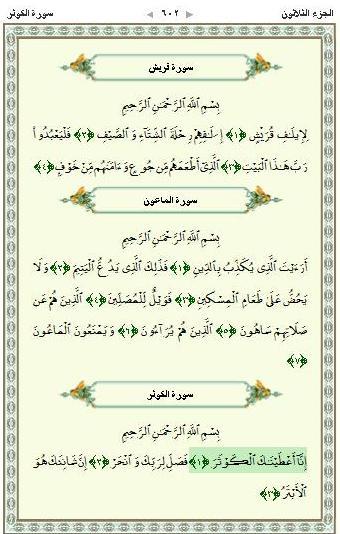 الجزء الثلاثون ٦٠٢ سورة الكوثر
سورة قريش
بِسْمِ ٱللَّهِ ٱلرَّحْمَٰنِ ٱلرَّحِيمِ
لِإِيلَٰفِ قُرَيْشٍ ﴿١﴾ إِۦلَٰفِهِمْ رِحْلَةَ ٱلشِّتَآءِ وَٱلصَّيْفِ ﴿٢﴾ فَلْيَعْبُدُوا۟
رَبَّ هَٰذَا ٱلْبَيْتِ ﴿٣﴾ ٱلَّذِىٓ أَطْعَمَهُم مِّن جُوعٍ وَءَامَنَهُم مِّنْ خَوْفٍۭ ﴿٤﴾
سورة الماعون
بِسْمِ ٱللَّهِ ٱلرَّحْمَٰنِ ٱلرَّحِيمِ
أَرَءَيْتَ ٱلَّذِى يُكَذِّبُ بِٱلدِّينِ ﴿١﴾ فَذَٰلِكَ ٱلَّذِى يَدُعُّ ٱلْيَتِيمَ ﴿٢﴾ وَلَا
يَحُضُّ عَلَىٰ طَعَامِ ٱلْمِسْكِينِ ﴿٣﴾ فَوَيْلٌ لِّلْمُصَلِّينَ ﴿٤﴾ ٱلَّذِينَ هُمْ عَن
صَلَاتِهِمْ سَاهُونَ ﴿٥﴾ ٱلَّذِينَ هُمْ يُرَآءُونَ ﴿٦﴾ وَيَمْنَعُونَ ٱلْمَاعُونَ
﴿٧﴾
سورة الكوثر
بِسْمِ ٱللَّهِ ٱلرَّحْمَٰنِ ٱلرَّحِيمِ
إِنَّآ أَعْطَيْنَٰكَ ٱلْكَوْثَرَ ﴿١﴾ فَصَلِّ لِرَبِّكَ وَٱنْحَرْ ﴿٢﴾ إِنَّ شَانِئَكَ هُوَ
ٱلْأَبْتَرُ ﴿٣﴾